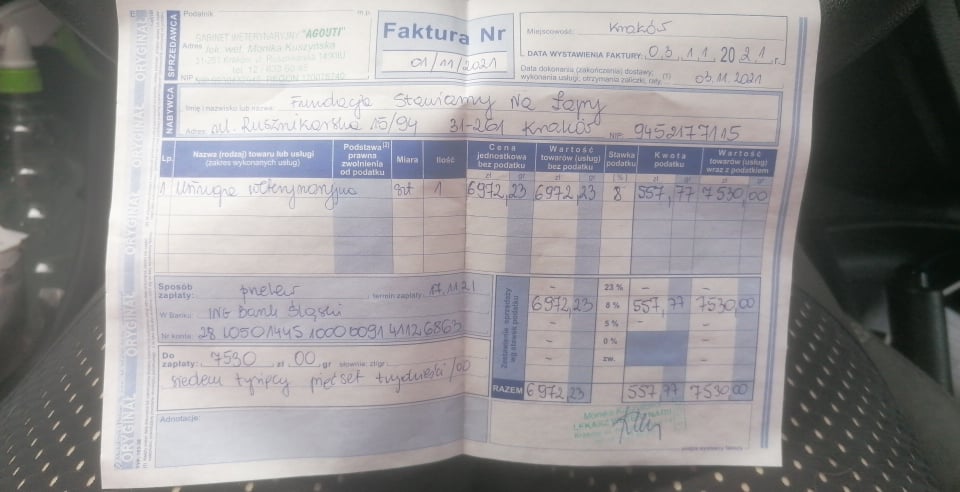 ORYGINAŁ ORYGINAŁ ORYGINAŁ ORYGINAŁ ORYGINAŁ
SPRZEDAWCA
Podatnik
m.p.
GABINET WETERYNARYJNY "AGOUTI"
Adres
lek. wet. Monika Kuszyńska
31-261 Kraków
tel. 12
NIP
REGON
Faktura Nr
01/11/2021
Miejscowość: Kraków
DATA WYSTAWIENIA FAKTURY: 03.11.2021
Data dokonania (zakończenia) dostawy;
wykonania usługi; otrzymania zaliczki, raty (1) 03.11.2021
NABYWCA
Imię i nazwisko lub nazwa: Fundacja Stawiamy Na Łapy
Adres: ul. Rusznikarska 15/94 31-261 Kraków NIP: 9452177115
Lp. Nazwa (rodzaj) towaru lub usługi (zakres wykonanych usług) Podstawa prawna zwolnienia od podatku (2) Miara Ilość Cena jednostkowa bez podatku Wartość towarów (usług) bez podatku Stawka podatku Kwota podatku Wartość towarów (usług) wraz z podatkiem
zł gr zł gr [%] zł gr zł gr
1 Usługa weterynaryjna szt 1 6972,23 6972,23 8 557,77 7530,00
Sposób zapłaty: przelew termin zapłaty 17.11.21
W Banku: ING Bank Śląski
Nr konta: 28 1050 1445 1000 0091 4112 6863
Do zapłaty: 7530 zł 00 gr słownie: zł/gr
siedem tysięcy pięćset trzydzieści /00
Adnotacje:
Zestawienie sprzedaży wg stawek podatku
- 23 % - -
6972,23 8 % 557,77 7530,00
- 5 % - -
- 0 % -
- zw. -
RAZEM 6972,23 557,77 7530,00
Monika
LEKARZ